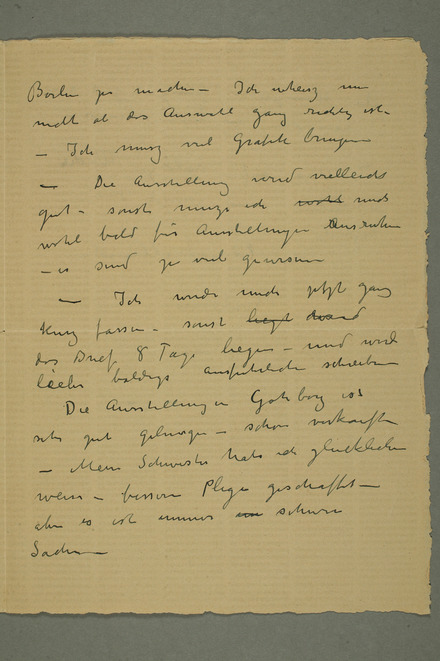 Berlin zu machen – Ich weiss nur
nicht ob das Auswahl ganz richtig ist –
– Ich muss viel Grafik bringen
– Die Ausstellung wird vielleicht
gut – sonst muss ich mich
wohl bald für Ausstellungen
– es sind zu viel gewesen
– Ich werde mich jetzt ganz
kurz fassen – sonst liegt
das Brief 8 Tage liegen – und will
lieber baldigst ausführlicher schreiben
Die Ausstellung in Goteborg ist
sehr gut gehangen – schon verkauft
– Meine Schwester habe ich glücklicher
weise – bessere Pflege geschafft –
aber es ist immer schwere
Sachen –